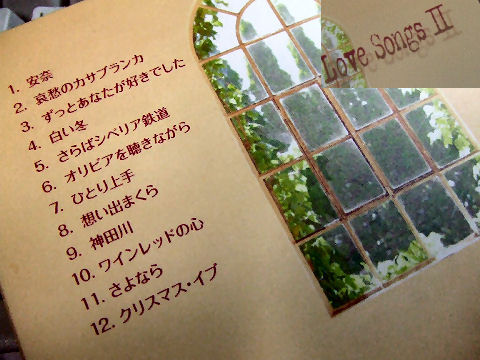 Love Songs II
1. 安奈
2. 哀愁のカサブランカ
3. ずっとあなたが好きでした
4. 白い冬
5. さらばシベリア鉄道
6. オリビアを聴きながら
7. ひとり上手
8. 想い出まくら
9. 神田川
10. ワインレッドの心
11. さよなら
12. クリスマス・イブ